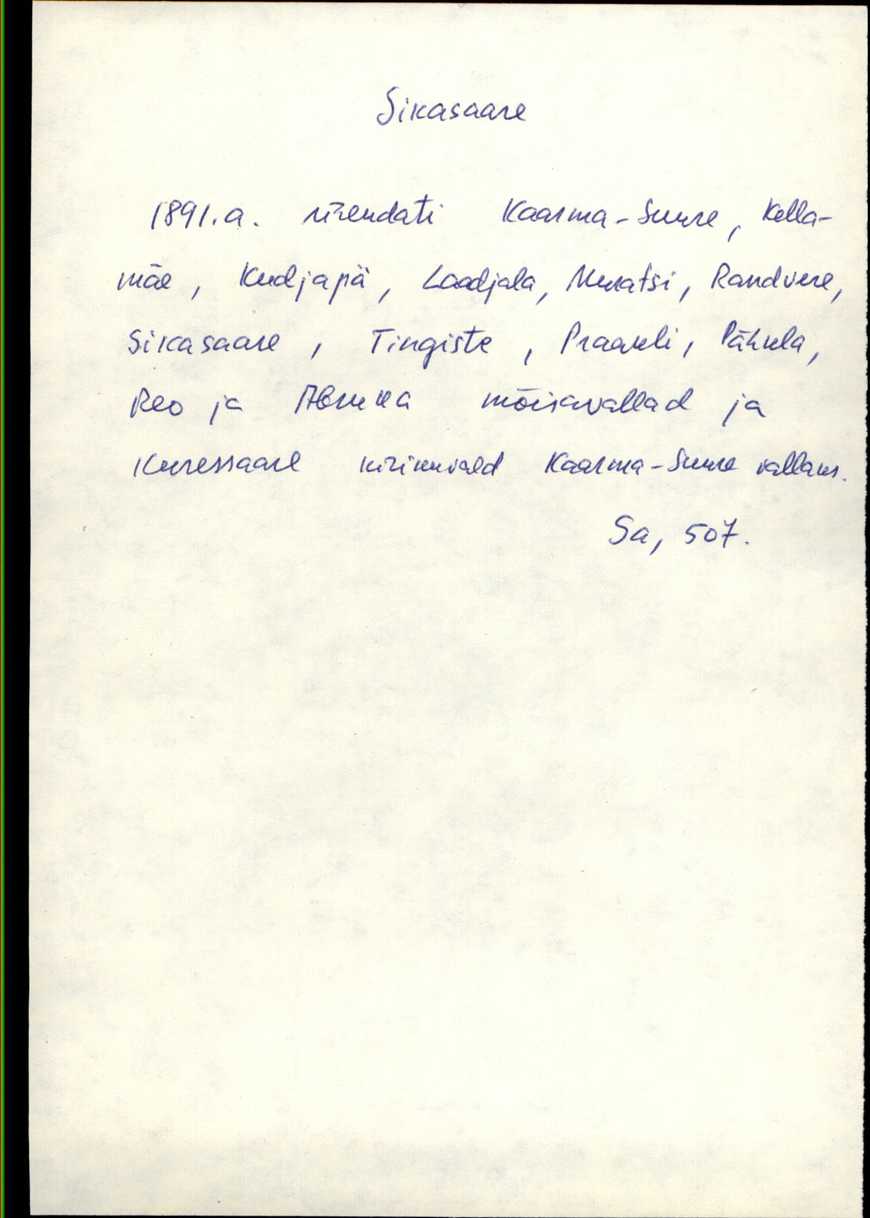 Sikasaare
1891.a. ühendati Kaarma-Suure, Kella-
mäe, Kudjapä, Laadjala, Muratsi, Randvere,
Sikasaare, Tingiste, Praakli, Pähkla,
Reo ja Abruka mõisavallad ja
Kuressaare kirikuvald Kaarma-Suure vallaks.
Sa, 507.